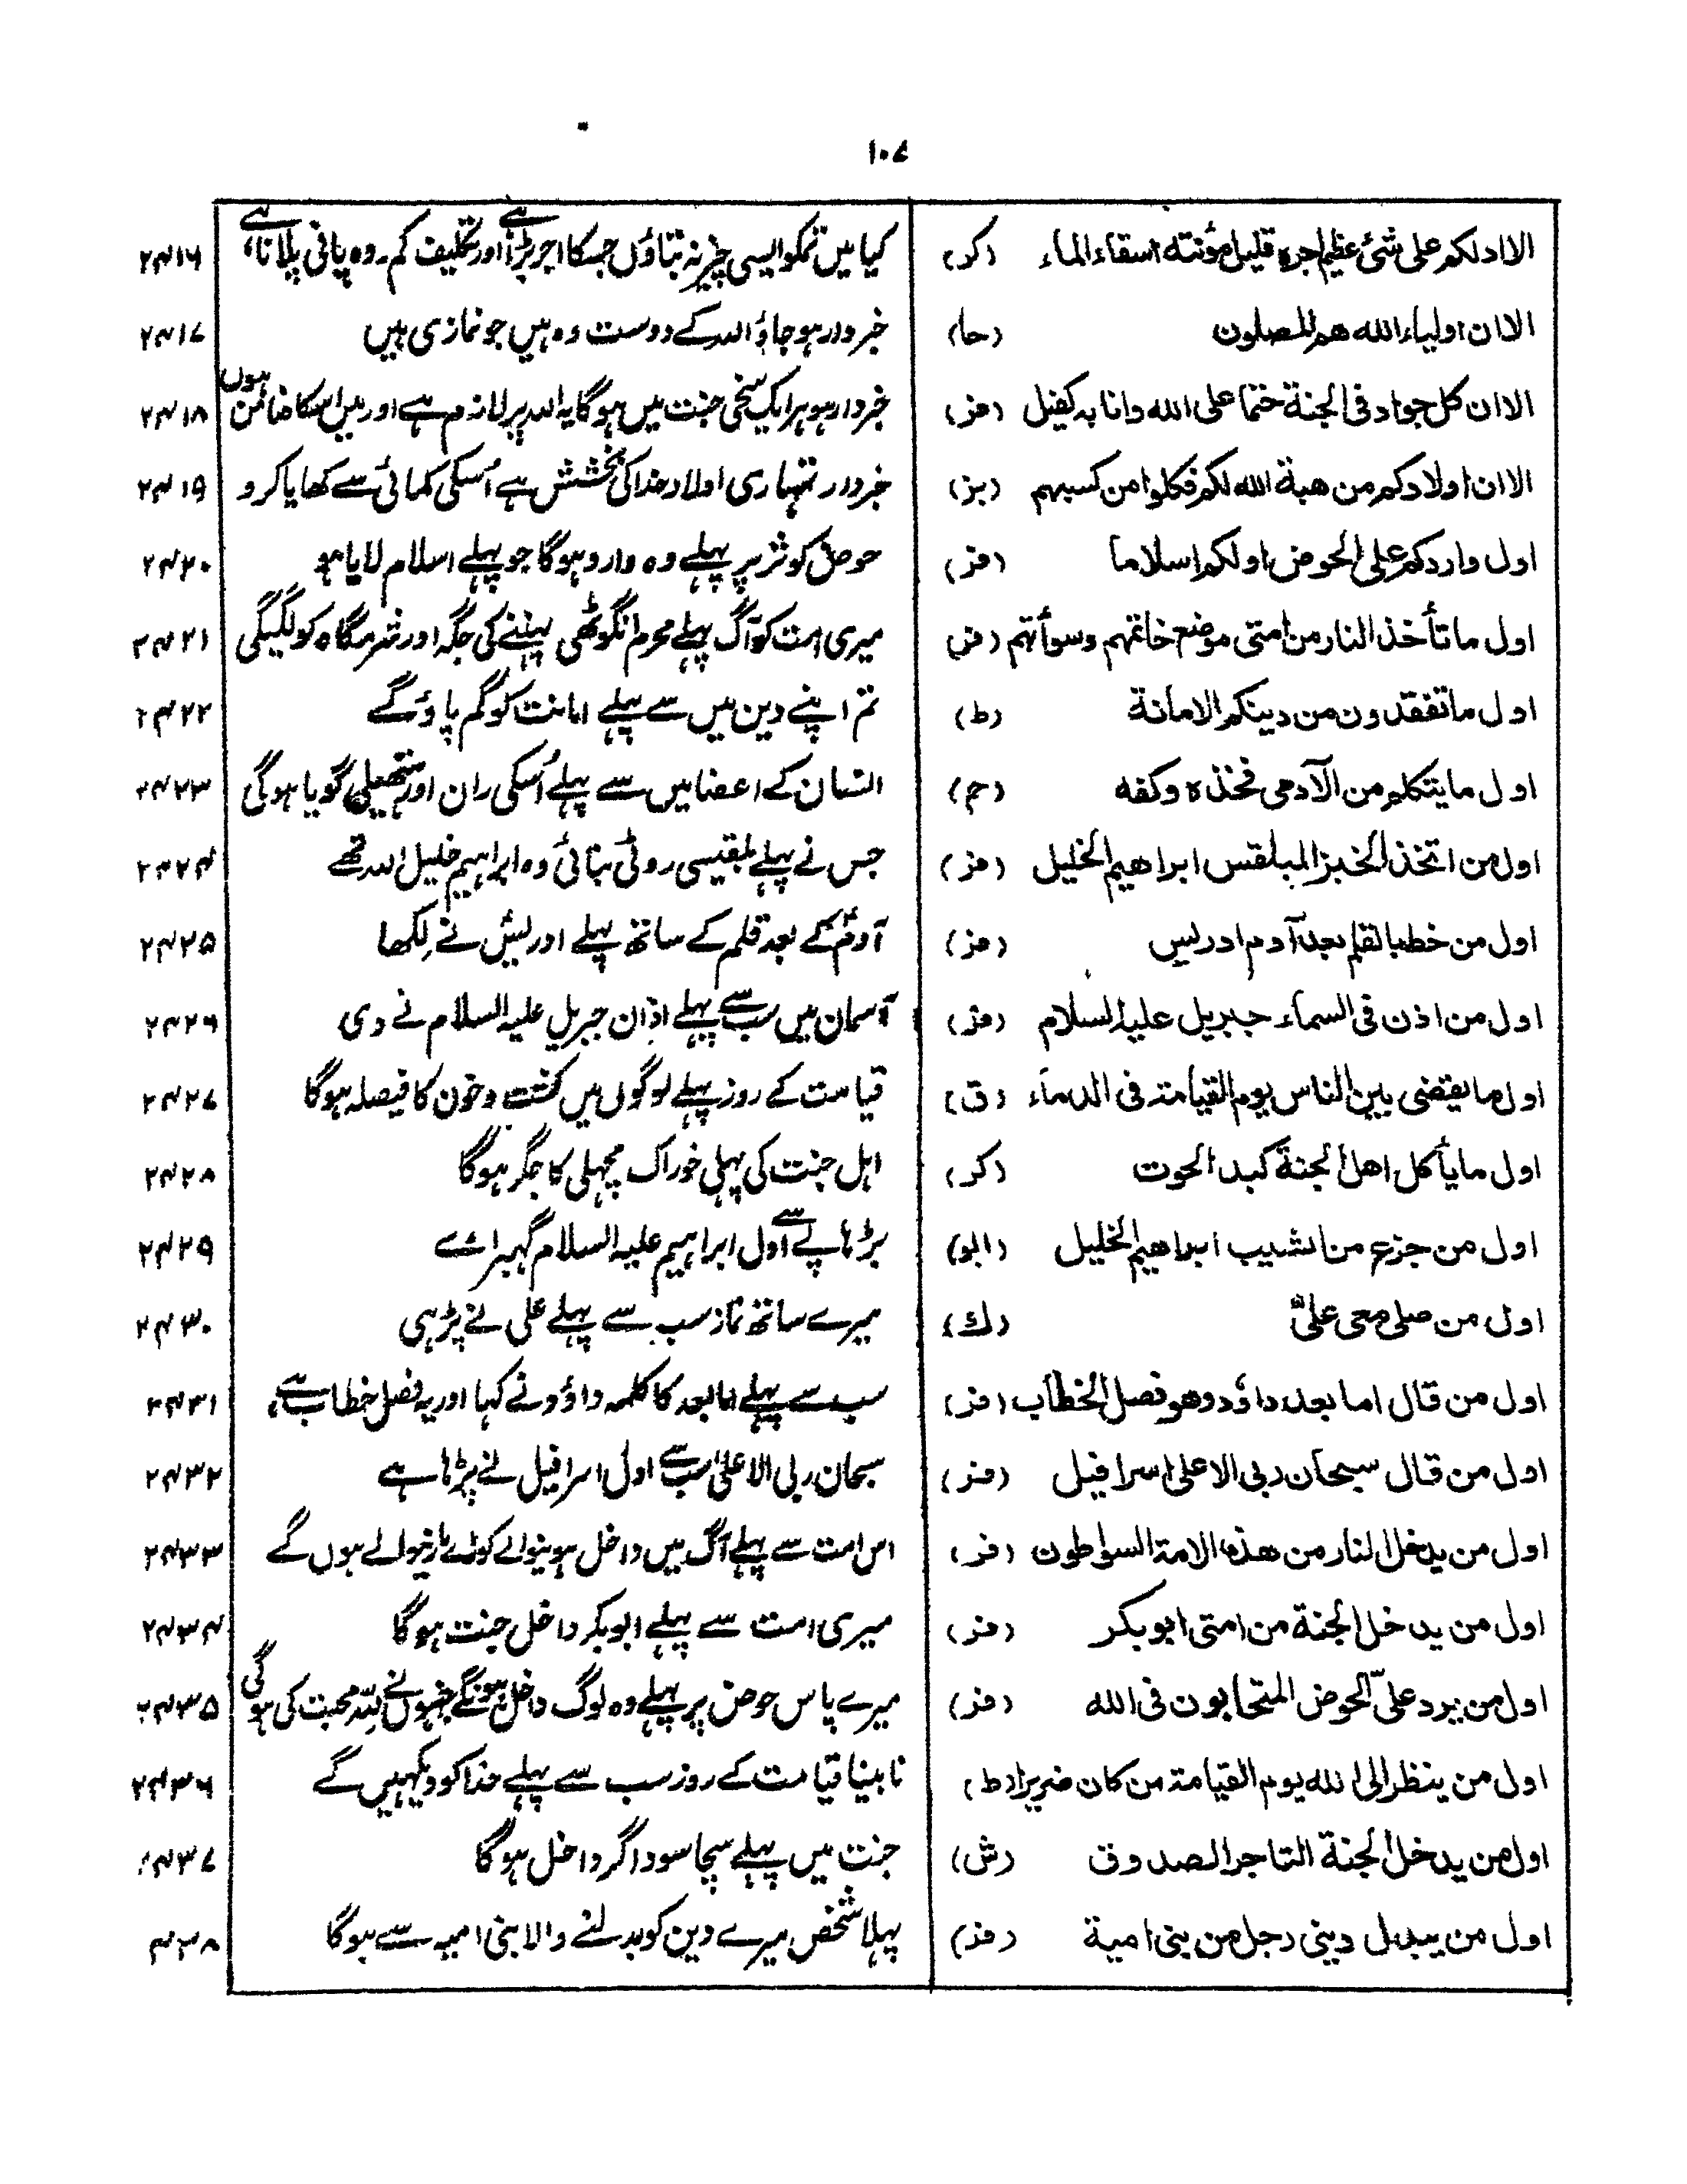 ۱۰۷
الا ادلکم علی شئ عظیم اجرہ قلیل مؤنتہ اسقاء الماء (کر) کیا میں تمکو ایسی چیز نہ بتاؤں جسکا اجر بڑا ہے اور تکلیف کم ۔ وہ پانی پلانا ہے، ۲۴۱۶
الا ان اولیاء اللہ ھم المصلون (حا) خبردار ہو جاؤ اللہ کے دوست وہ ہیں جو نمازی ہیں ۲۴۱۷
الا ان کل جواد فی الجنۃ حتما علی اللہ وانا بہ کفیل (فز) خبردار ہو ہر ایک سخی جنت میں ہوگا یہ اللہ پر لازم ہے اور میں اسکا ضامن ہوں ۲۴۱۸
الا ان اولادکم من ھبۃ اللہ لکم فکلوا من کسبہم (بز) خبردار تمہاری اولاد خدا کی بخشش ہے اُسکی کمائی سے کھایا کرو ۲۴۱۹
اول واردکم علی الحوض اولکم اسلاما (فز) حوض کوثر پر پہلے وہ وارد ہوگا جو پہلے اسلام لایا ہو ۲۴۲۰
اول ما تأخذ النار من امتی موضع خاتمہم وسوأتہم (فز) میری امت کو آگ پہلے محرم انگوٹھی پہننے کی جگہ اور شرمگاہ کو لگیگی ۲۴۲۱
اول ما تفقدون من دینکم الامانۃ (ط) تم اپنے دین میں سے پہلے امانت کو گم پاؤگے ۲۴۲۲
اول ما یتکلم من الآدمی فخذہ وکفہ (حم) انسان کے اعضا میں سے پہلے اُسکی ران اور ہتھیلی گویا ہوگی ۲۴۲۳
اول من اتخذ الخبز المبلقس ابراھیم الخلیل (فز) جس نے پہلے بلقیسی روٹی بنائی وہ ابراہیم خلیل اللہ تھے ۲۴۲۴
اول من خط بالقلم بعد آدم ادریس (فز) آدمؑ کے بعد قلم کے ساتھ پہلے ادریسؑ نے لِکھا ۲۴۲۵
اول من اذن فی السماء جبریل علیہ السلام (فز) آسمان میں سب سے پہلے اذان جبریل علیہ السلام نے دی ۲۴۲۶
اول ما یقضی بین الناس یوم القیامۃ فی الدماء (ق) قیامت کے روز پہلے لوگوں میں کشت وخون کا فیصلہ ہوگا ۲۴۲۷
اول ما یأکل اھل الجنۃ کبد الحوت (کر) اہل جنت کی پہلی خوراک مچہلی کا جگر ہوگا ۲۴۲۸
اول من جزع من الشیب ابراھیم الخلیل (ابو) بڑہاپے سے اول ابراہیم علیہ السلام گہبرائے ۲۴۲۹
اول من صلی معی علیؓ (ک) میرے ساتھ نماز سب سے پہلے علی نے پڑہی ۲۴۳۰
اول من قال اما بعد داؤد وھو فصل الخطاب (فز) سب سے پہلے اما بعد کا کلمہ داؤد نے کہا اور یہ فصل خطاب ہے، ۲۴۳۱
اول من قال سبحان ربی الاعلی اسرافیل (فز) سبحان ربی الاعلیٰ سب سے اول اسرافیل نے پڑہا ہے ۲۴۳۲
اول من یدخل النار من ھذہ الامۃ السواطون (فز) اس امت سے پہلے آگ میں داخل ہونیوالے کوڑے مارنیوالے ہوں گے ۲۴۳۳
اول من یدخل الجنۃ من امتی ابو بکر (فز) میری امت سے پہلے ابوبکر داخل جنت ہوگا ۲۴۳۴
اول من یرد علیّ الحوض المتحابون فی اللہ (فز) میرے پاس حوض پر پہلے وہ لوگ داخل ہونگے جنہوں نے للّٰہ محبت کی ہوگی ۲۴۳۵
اول من ینظر الی اللہ یوم القیامۃ من کان ضریرا (ط) نابینا قیامت کے روز سب سے پہلے خدا کو دیکہیں گے ۲۴۳۶
اول من یدخل الجنۃ التاجر الصدوق (ش) جنت میں پہلے سچا سوداگر داخل ہوگا ۲۴۳۷
اول من یبدل دینی رجل من بنی امیۃ (فز) پہلا شخص میرے دین کو بدلنے والا بنی امیہ سے ہوگا ۴۳۸